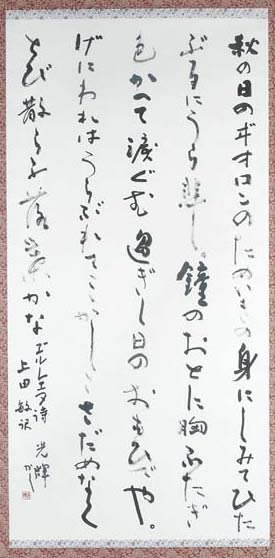 秋の日のヸオロンのためいきの身にしみてひた
ぶるにうら悲し。鐘のおとに胸ふたぎ
色かへて涙ぐむ過ぎし日のおもひでや。
げにわれはうらぶれてここかしこさだめなく
とび散らふ落葉かな
ヹルレエヌ詩 光輝
上田敏訳